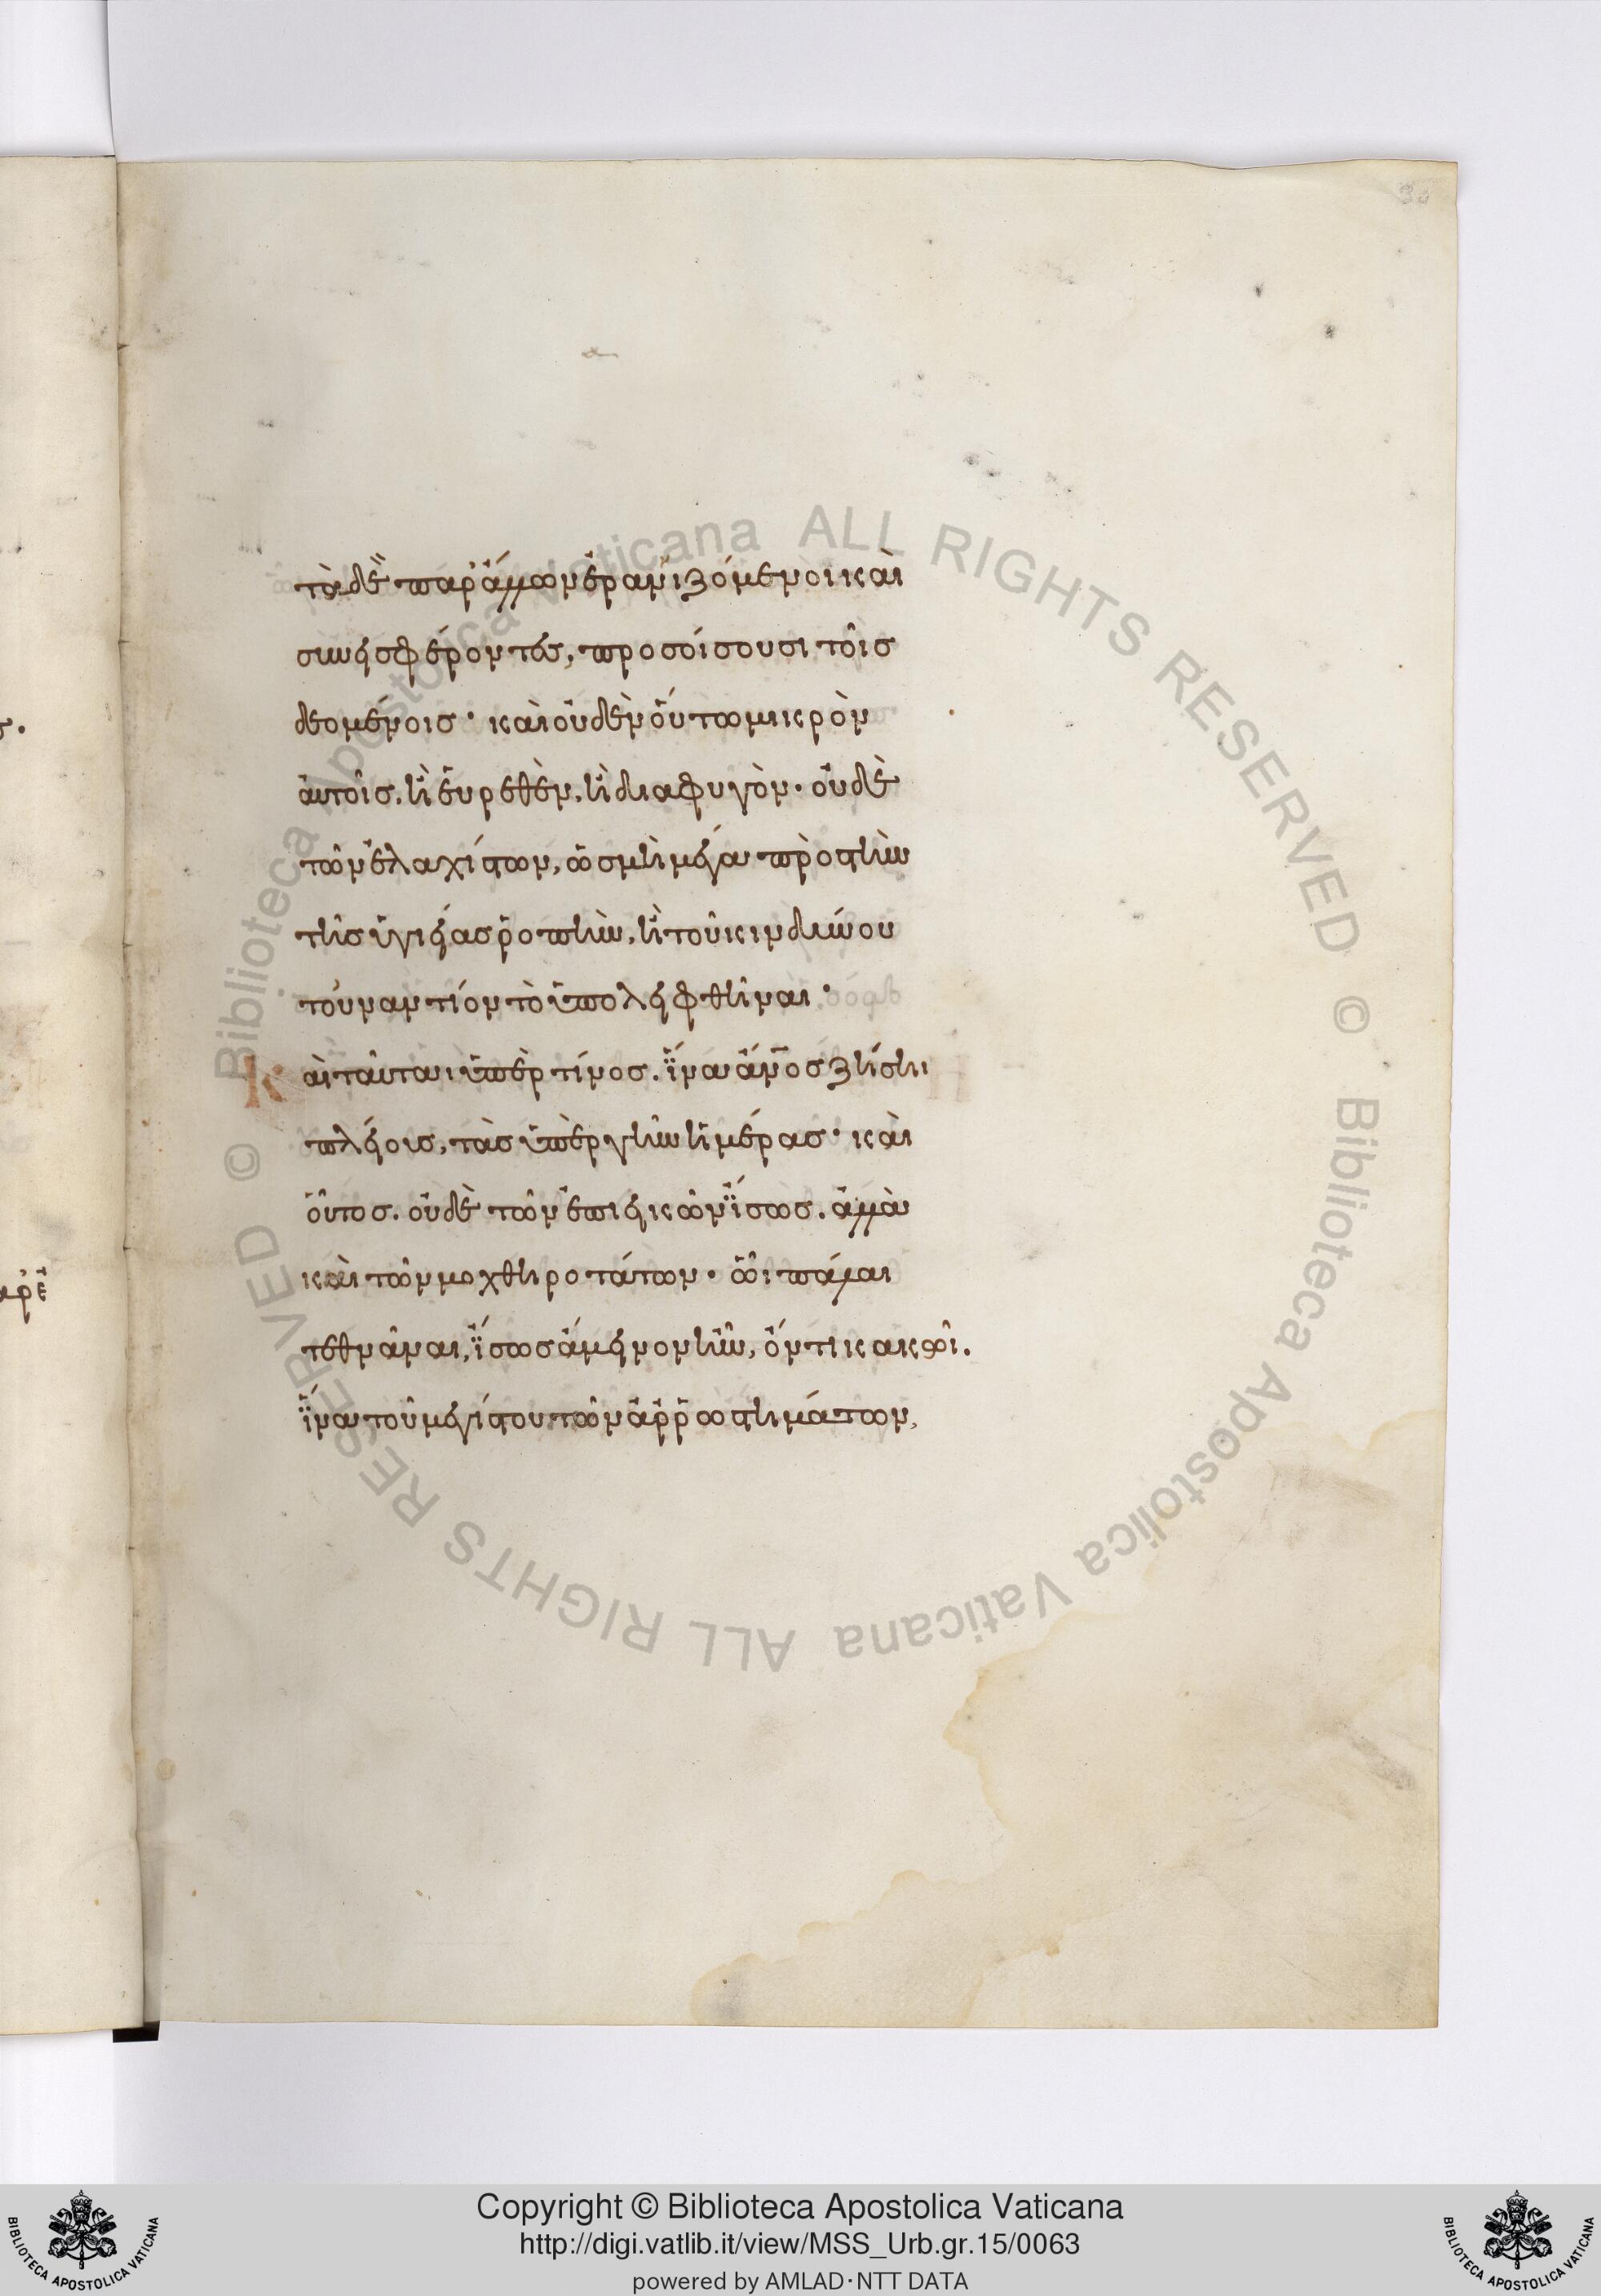 30
τὰ δὲ παρ' ἄλλων ἐρανιζόμενοι καὶ
συνεισφέροντες, προσοίσουσι τοῖς
δεομένοις· καὶ οὐδὲν οὕτω μικρὸν
αὐτοῖς, ἢ εὑρεθὲν, ἢ διαφυγὸν· οὐδὲ
τῶν ἐλαχίστων, ὡς μὴ μεγάλην πρὸς τὴν
τῆς ὑγιείας ῥοπὴν, ἢ τοῦ κινδύνου
τοὐναντίον τὸ ὑποληφθῆναι·
Καὶ ταῦτα ὑπὲρ τίνος. ἵνα ἄνος ζήσῃ
πλείους, τὰς ὑπὲρ γῆν ἡμέρας· καὶ
οὗτος. οὐδὲ τῶν ἐπιεικῶν ἴσως. ἀλλὰ
καὶ τῶν μοχθηροτάτων· ᾧ πάλαι
τεθνᾶναι, ἴσως ἄμεινον ἦν, ὄντι κακῷ.
ἵνα τοῦ μεγίστου τῶν ἀρρωστημάτων,
Copyright © Biblioteca Apostolica Vaticana
http://digi.vatlib.it/view/MSS_Urb.gr.15/0063
powered by AMLAD·NTT DATA
BIBLIOTECA APOSTOLICA VATICANA
BIBLIOTECA APOSTOLICA VATICANA
© Biblioteca Apostolica Vaticana ALL RIGHTS RESERVED © Biblioteca Apostolica Vaticana ALL RIGHTS RESERVED